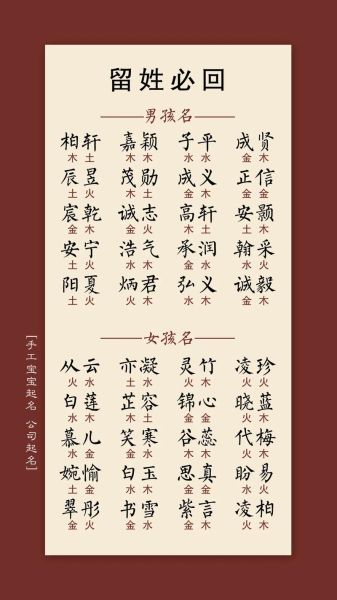 留姓必回
男孩名
柏轩 嘉颖 子平 成贤
木土 木木 水水 金木
辰昱 茂勋 成义 正信
土火 木土 金木 金金
宸乾 诚志 高轩 安颢
金木 金火 木土 土木
安宁 浩气 承润 翰采
土火 水水 金水 水火
阳夏 炳君 弘义 诚毅
土火 火木 水木 金木
女孩名
从云 亦凝 灵竹 凌珍
火水 土水 火木 火火
白莲 芷容 锦心 晓蓝
水木 木土 金金 火木
慕儿 笑寒 谷蕊 代梅
水金 金水 木木 火木
婉愉 白玉 思真 盼易
土金 水木 金金 水火
翠彤 书雪 紫言 凌柏
金火 金水 金木 火木
[手工宝宝起名 公司起名]